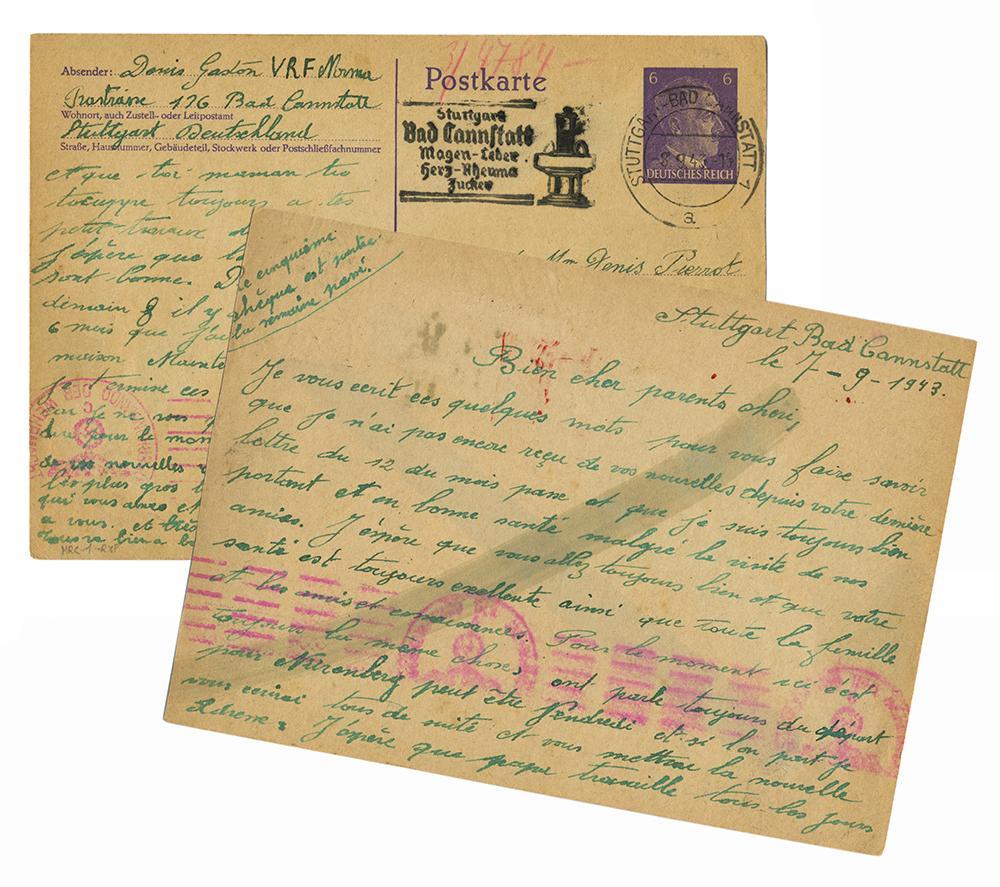 Absender: Denis Gaston VRF Norma
Prastrasse 176 Bad Cannstatt
Wohnort, auch Zustell- oder Leitpostamt
Stuttgart Deutschland
Straße, Hausnummer, Gebäudeteil, Stockwerk oder Postschließfachnummer
3/4784 -
Postkarte
Stuttgart
Bad Cannstatt
Magen-Leber
Herz-Rheuma
Zucker
6 6
DEUTSCHES REICH
STUTTGART-BAD CANNSTATT 1
a
Mr Denis Pierrot
et que toi maman
toujours a tes
petit travaux
J'épère que
sont bonne.
demain 8 il y
6 mois que j'ai
maison
Je termine ces
car je ne
dire pour le
de vos nouvelles
les plus gros
qui vous aimes et
a vous. et
MRC-1-RXP
Le cinquième
chèque est partie
la semaine passé.
Stuttgart Bad Cannstatt
le 7-9-1943.
Bien cher parents cheri,
Je vous ecrit ces quelques mots pour vous faire savoir
que je n'ai pas encore reçu de vos nouvelles depuis votre dernière
lettre du 12 du mois passe et que je suis toujours bien
portant et en bonne santé malgré la visite de nos
amies. J'épère que vous allez toujours bien et que votre
santé est toujours excellente ainsi que toute la famille
et les amis et connaissances. Pour le moment ici c'est
toujour la même chose, ont parle toujours du départ
pour Nurenberg peut être Vendredi et si l'on part je
vous ecrirai tous de suite et vous mettrai la nouvelle
Adresse: J'épère que papa travaille tous les jours